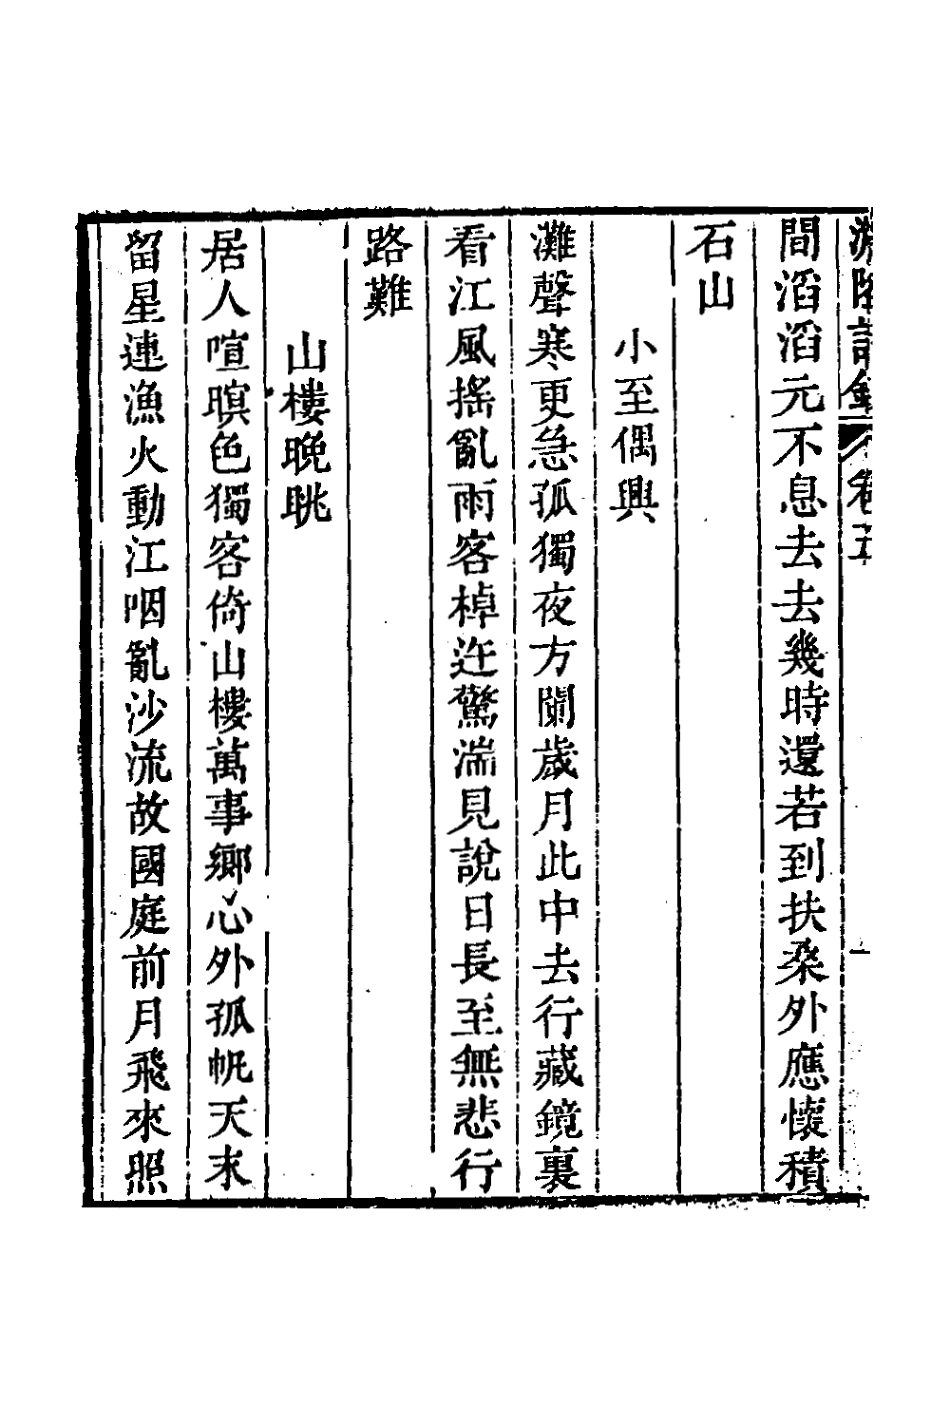 卷五
間滔滔元不息去去幾時還若到扶桑外應懷積
石山
小至偶興
灘聲寒更急孤獨夜方闌歲月此中去行藏鏡裏
看江風搖亂雨客棹迕驚湍見說日長至無悲行
路難
山樓晚眺
居人喧暝色獨客倚山樓萬事鄉心外孤帆天末
留星連漁火動江咽亂沙流故國庭前月飛來照